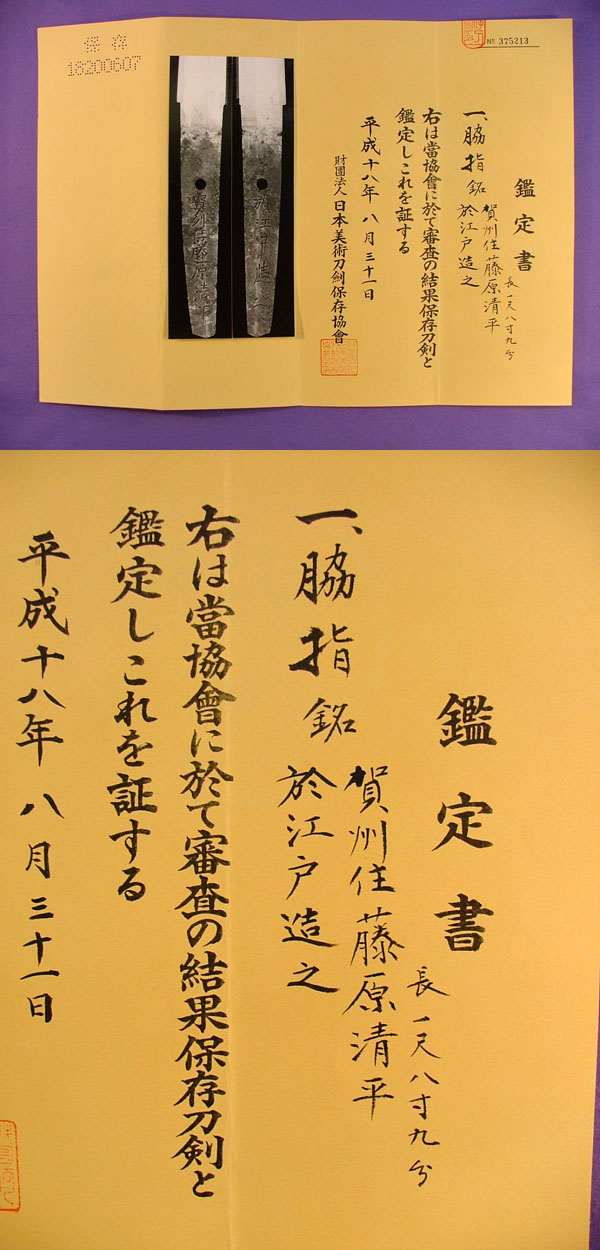 保存
18200607
№ 375213
鑑定書
長一尺八寸九分
一、脇指 銘 賀州住藤原清平
於江戸造之
右は當協會に於て審査の結果保存刀剣と
鑑定しこれを証する
平成十八年 八月 三十一日
財團法人日本美術刀劍保存協會
賀州住藤原清平
於江戸造之
鑑定書
長一尺八寸九分
一、脇指 銘 賀州住藤原清平
於江戸造之
右は當協會に於て審査の結果保存刀剣と
鑑定しこれを証する
平成十八年 八月 三十一日